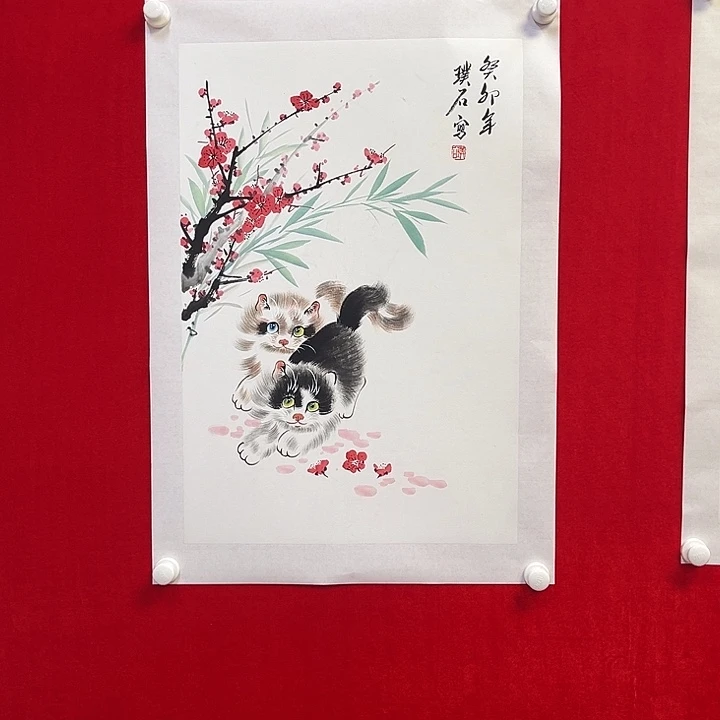 癸卯年
璞石写